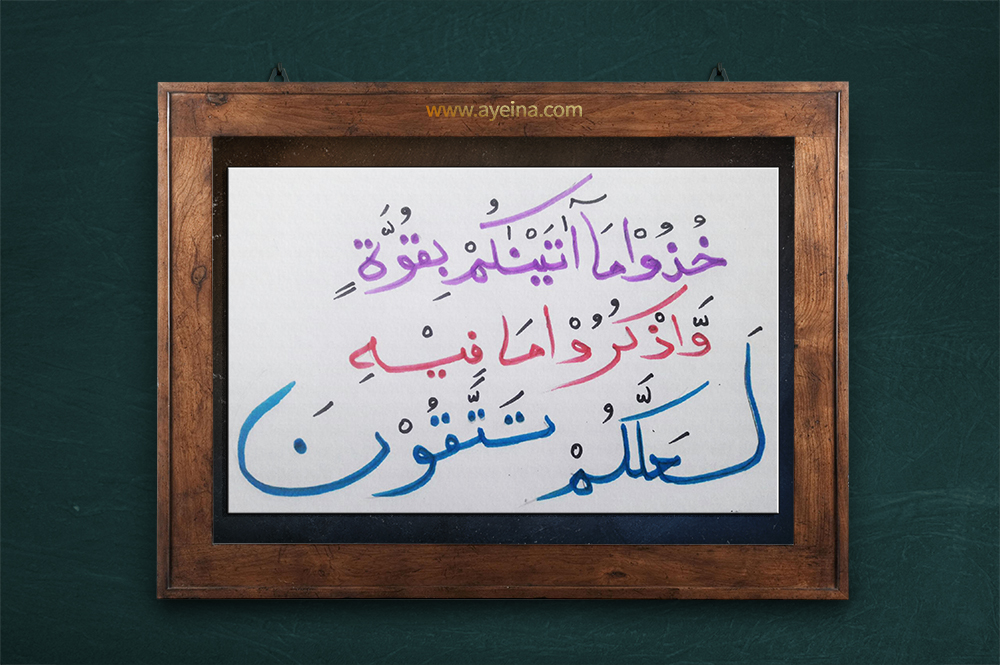 www.ayeina.com
خُذُوْا مَآ اٰتَيْنٰكُمْ بِقُوَّةٍ
وَّاذْكُرُوْا مَا فِيْهِ
لَعَلَّكُمْ تَتَّقُوْنَ